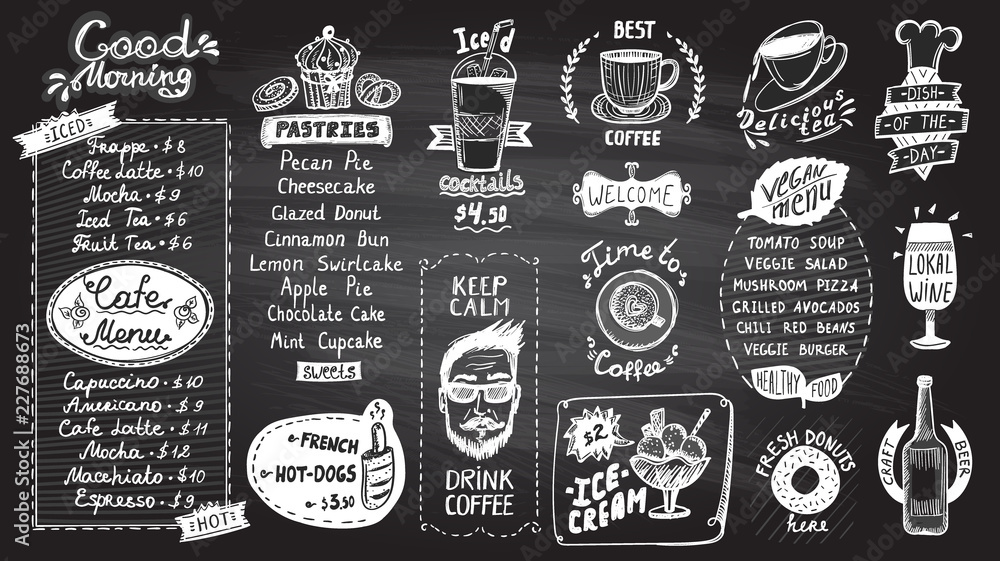 Good
Morning
ICED
Frappe • $8
Coffee Latte • $10
Mocha • $9
Iced Tea • $6
Fruit Tea • $6
Cafe
Menu
Capuccino • $10
Americano • $9
Cafe Latte • $11
Mocha • $12
Macchiato • $10
Espresso • $9
HOT
PASTRIES
Pecan Pie
Cheesecake
Glazed Donut
Cinnamon Bun
Lemon Swirlcake
Apple Pie
Chocolate Cake
Mint Cupcake
SWEETS
FRENCH
HOT-DOGS
$3.50
Iced
cocktails
$4.50
KEEP
CALM
DRINK
COFFEE
BEST
COFFEE
WELCOME
Time to
Coffee
$2
ICE-
CREAM
Delicious
tea
VEGAN
menu
TOMATO SOUP
VEGGIE SALAD
MUSHROOM PIZZA
GRILLED AVOCADOS
CHILI RED BEANS
VEGGIE BURGER
HEALTHY FOOD
FRESH DONUTS
here
DISH
OF THE
DAY
LOKAL
WINE
CRAFT BEER
Adobe Stock | #227688673